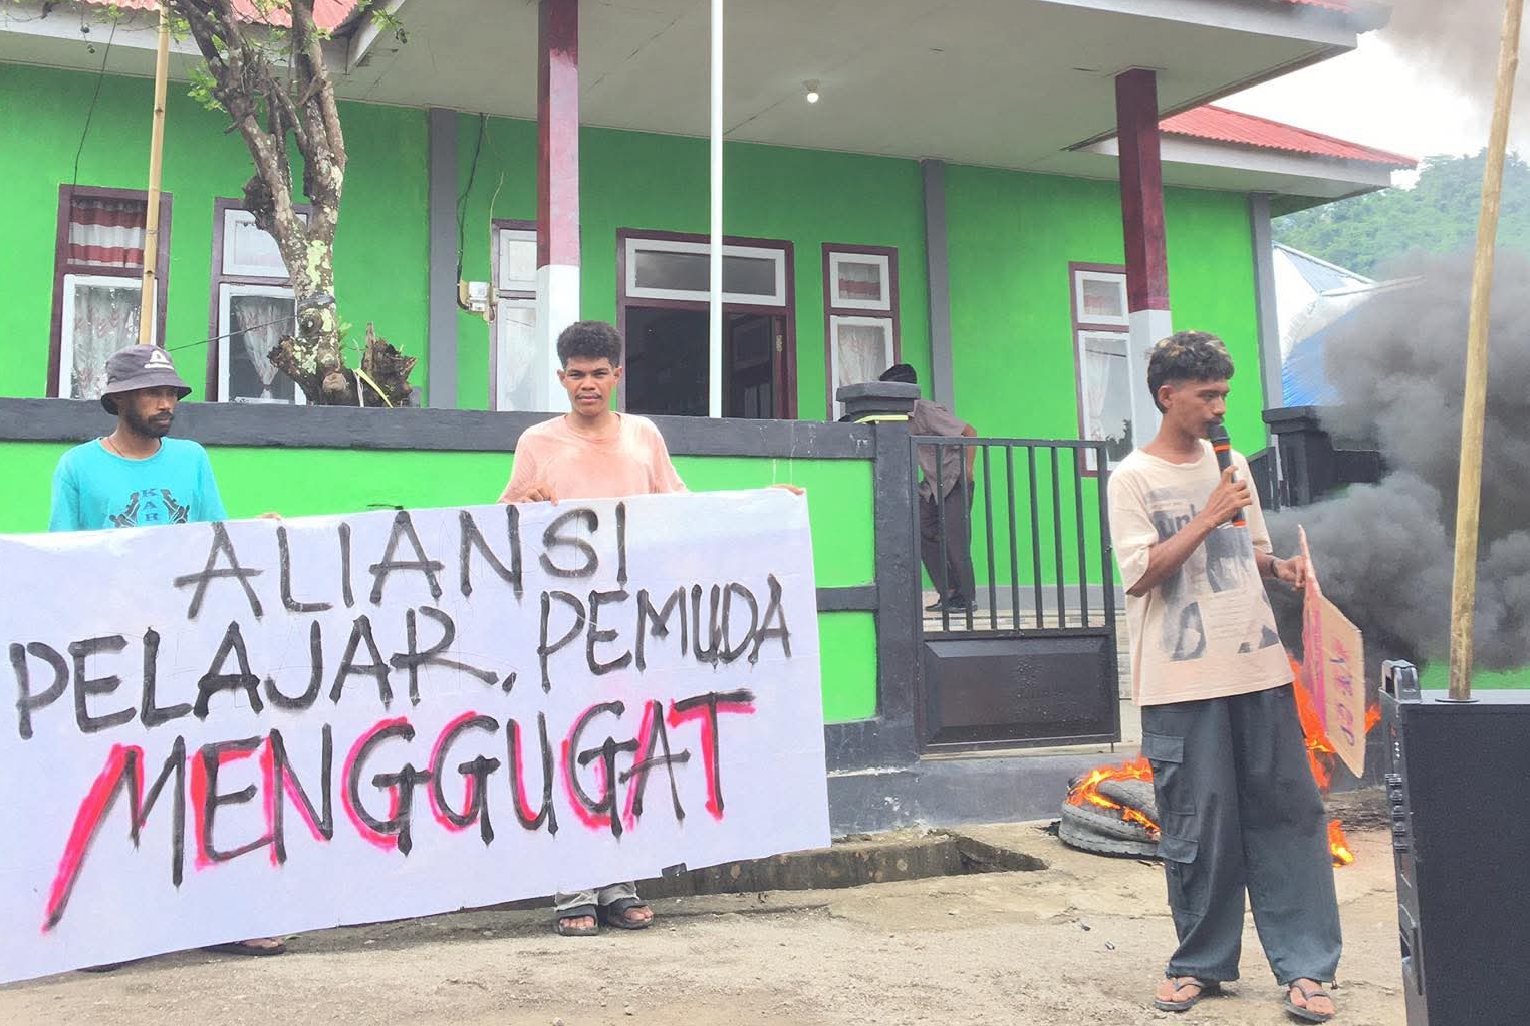 ALIANSI
PELAJAR. PEMUDA
MENGGUGAT
KAR